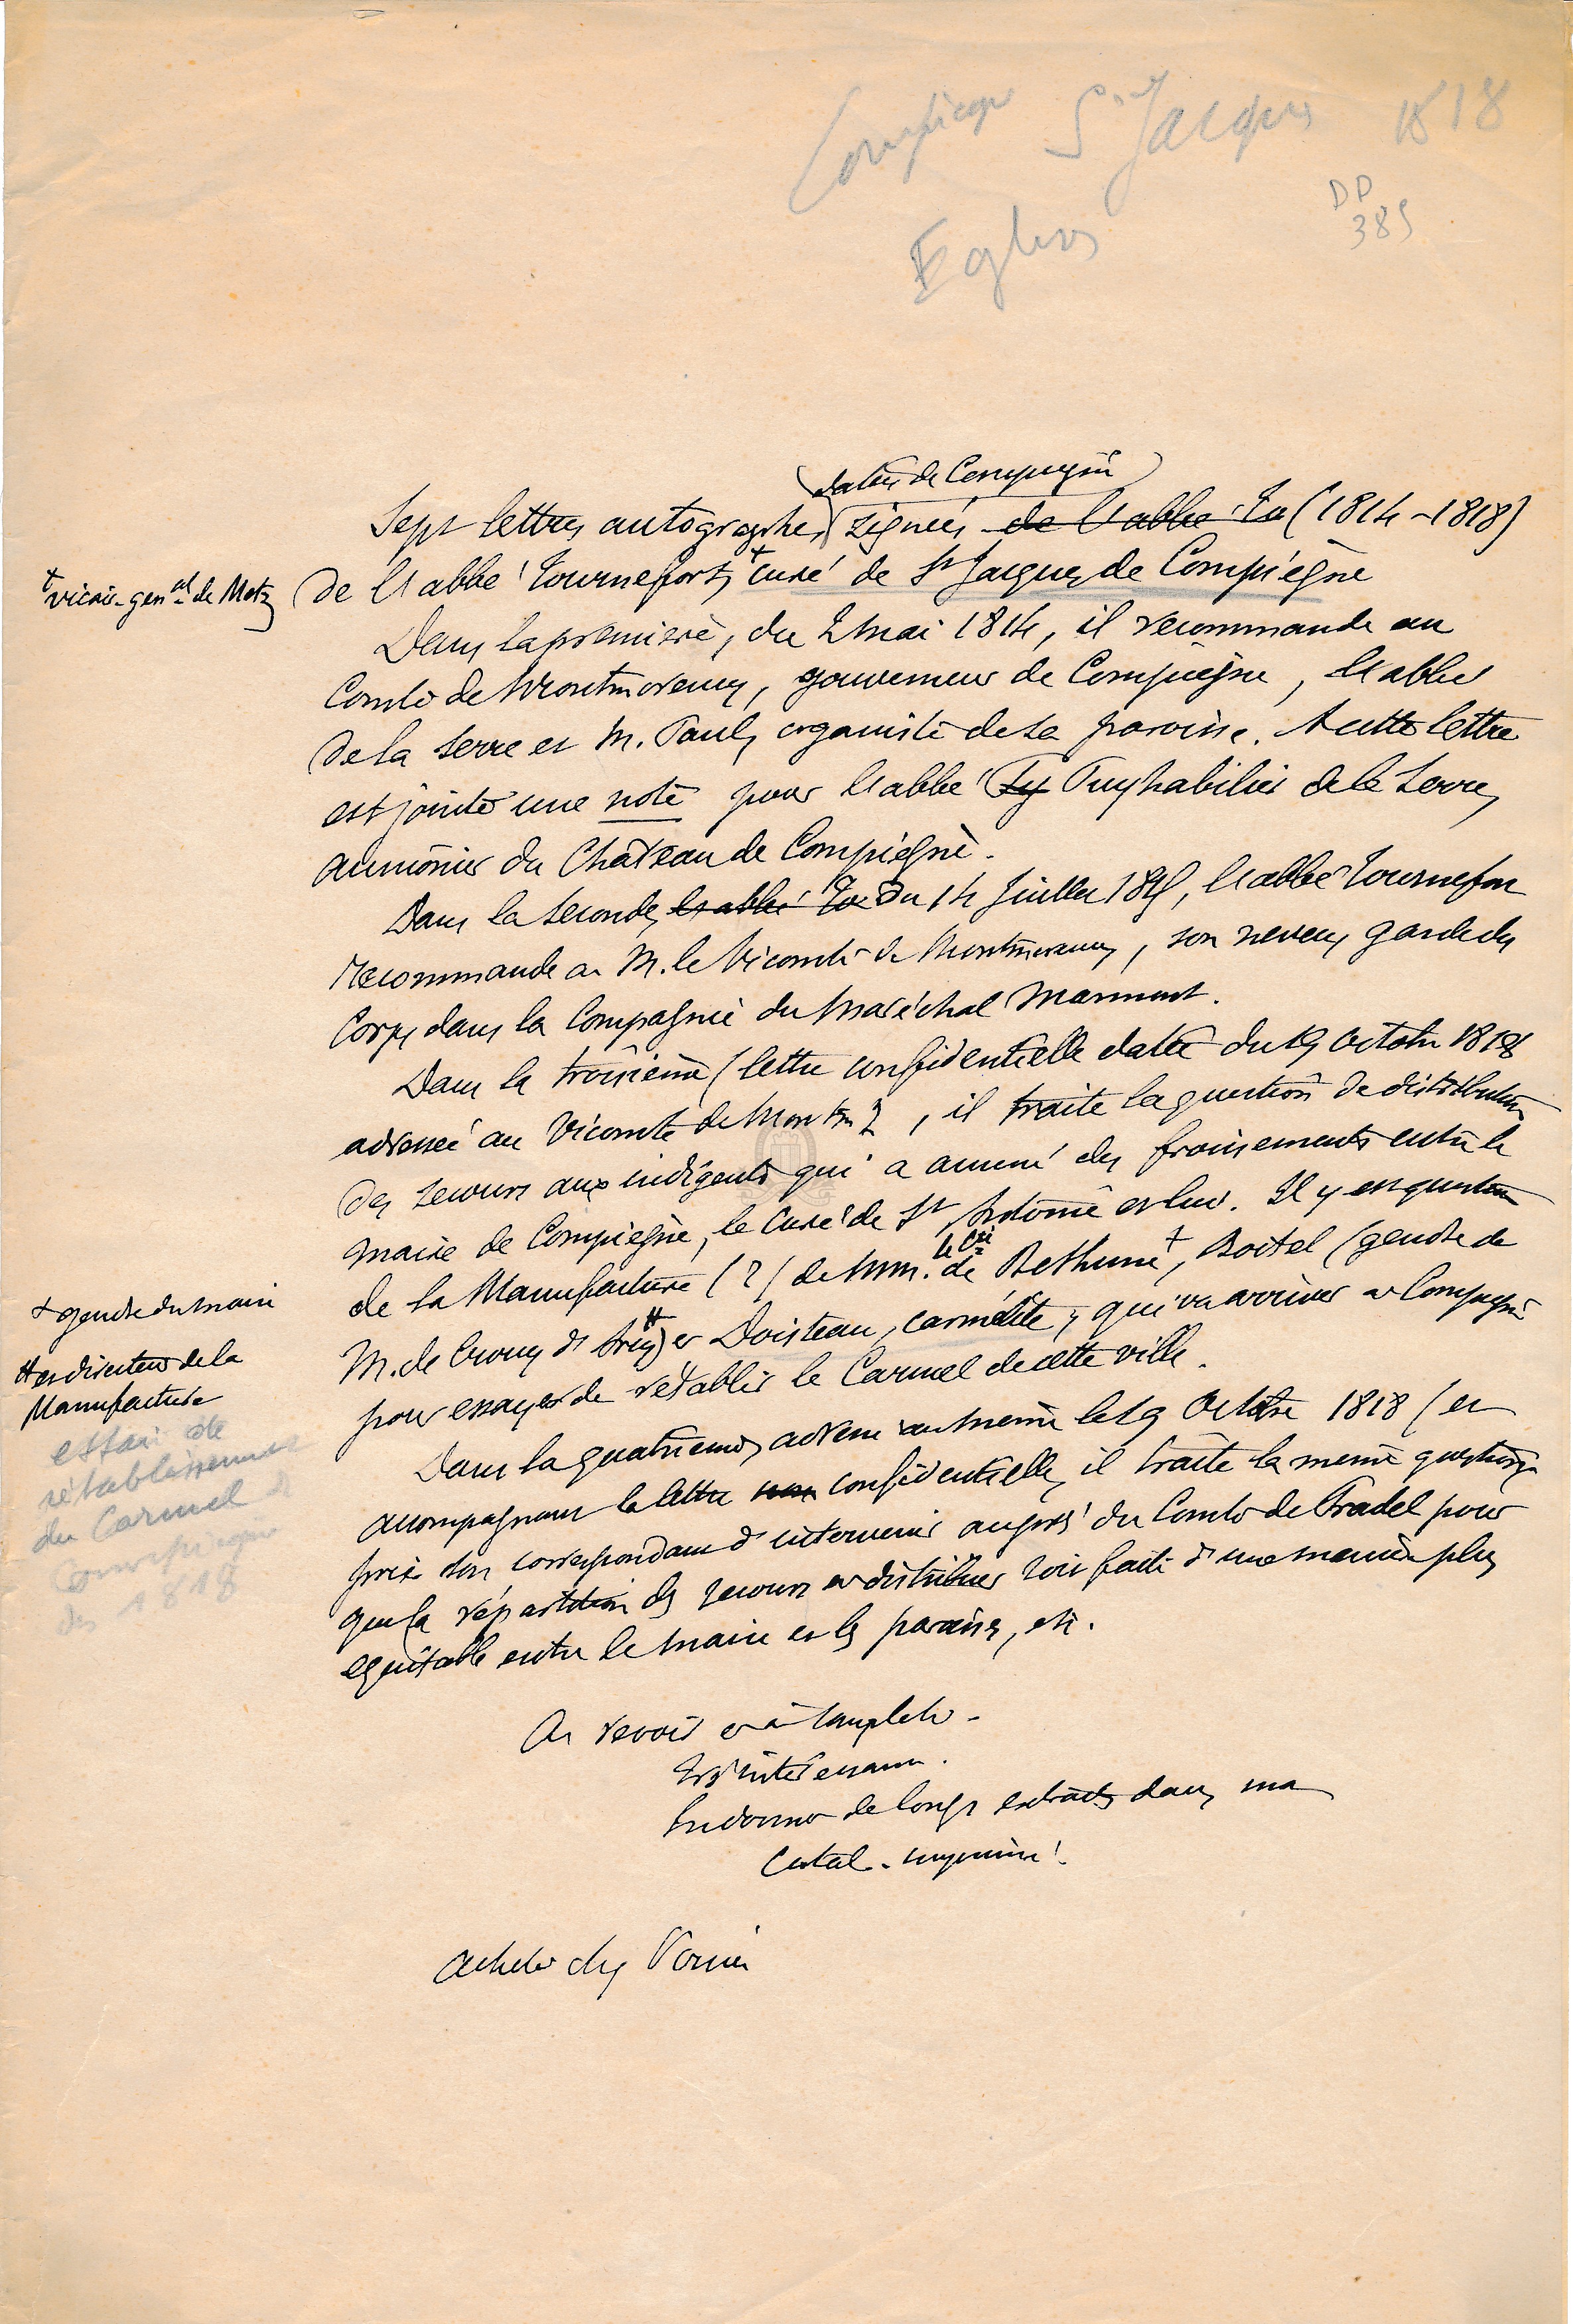 Compiègne St Jacques 1818
DP
385
Eglises
datées de Compiègne
Sept lettres autographes signées de l'abbé To (1814-1818)
+ vicaire-gen al de Metz
de l'abbé Tournefort, + curé de St Jacques de Compiègne
Dans la première, du 2 Mai 1814, il recommande au
Comte de Montmorency, gouverneur de Compiègne, l'abbé
de la Serre et M. Paul, organiste de sa paroisse. A cette lettre
est jointe une note pour l'abbé Puyhabilier de la Serre,
aumônier du Château de Compiègne.
Dans la seconde, l'abbé To du 14 Juillet 1815, l'abbé Tournefort
recommande a M. le Vicomte de Montmorency, son neveu, garde du
Corps dans la Compagnie du Maréchal Marmont.
Dans la troisième (lettre confidentielle datée du 19 Octobre 1818
adressée au Vicomte de Montm , il traite la question de distribution
des secours aux indigents qui a amené des froissements entre le
maire de Compiègne, le Curé de St Antoine et lui. Il y est question
le
de la Manufacture (?) de MM. de Bethune +, Boitel (gendre de
+ gendre du maire
M. de Crouy et Doisteau, carmélite, qui va arriver a Compiègne
# ex directeur de la
Manufacture
pour essayer de rétablir le Carmel de cette ville.
essai de
rétablissement
du Carmel de
Compiègne
en 1818
Dans la quatrième, adressée au meme le 19 Octobre 1818 (et
accompagnant la lettre non confidentielle, il traite la meme question,
prie son correspondant d'intervenir auprès du Comte de Pradel pour
que la répartition des secours a distribuer soit faite d'une manière plus
equitable entre le maire et les paroisses, etc.
A revoir et à completer -
Très intéressant.
En donner de longs extraits dans ma
Catal. imprimé.
Acheté chez Voisin